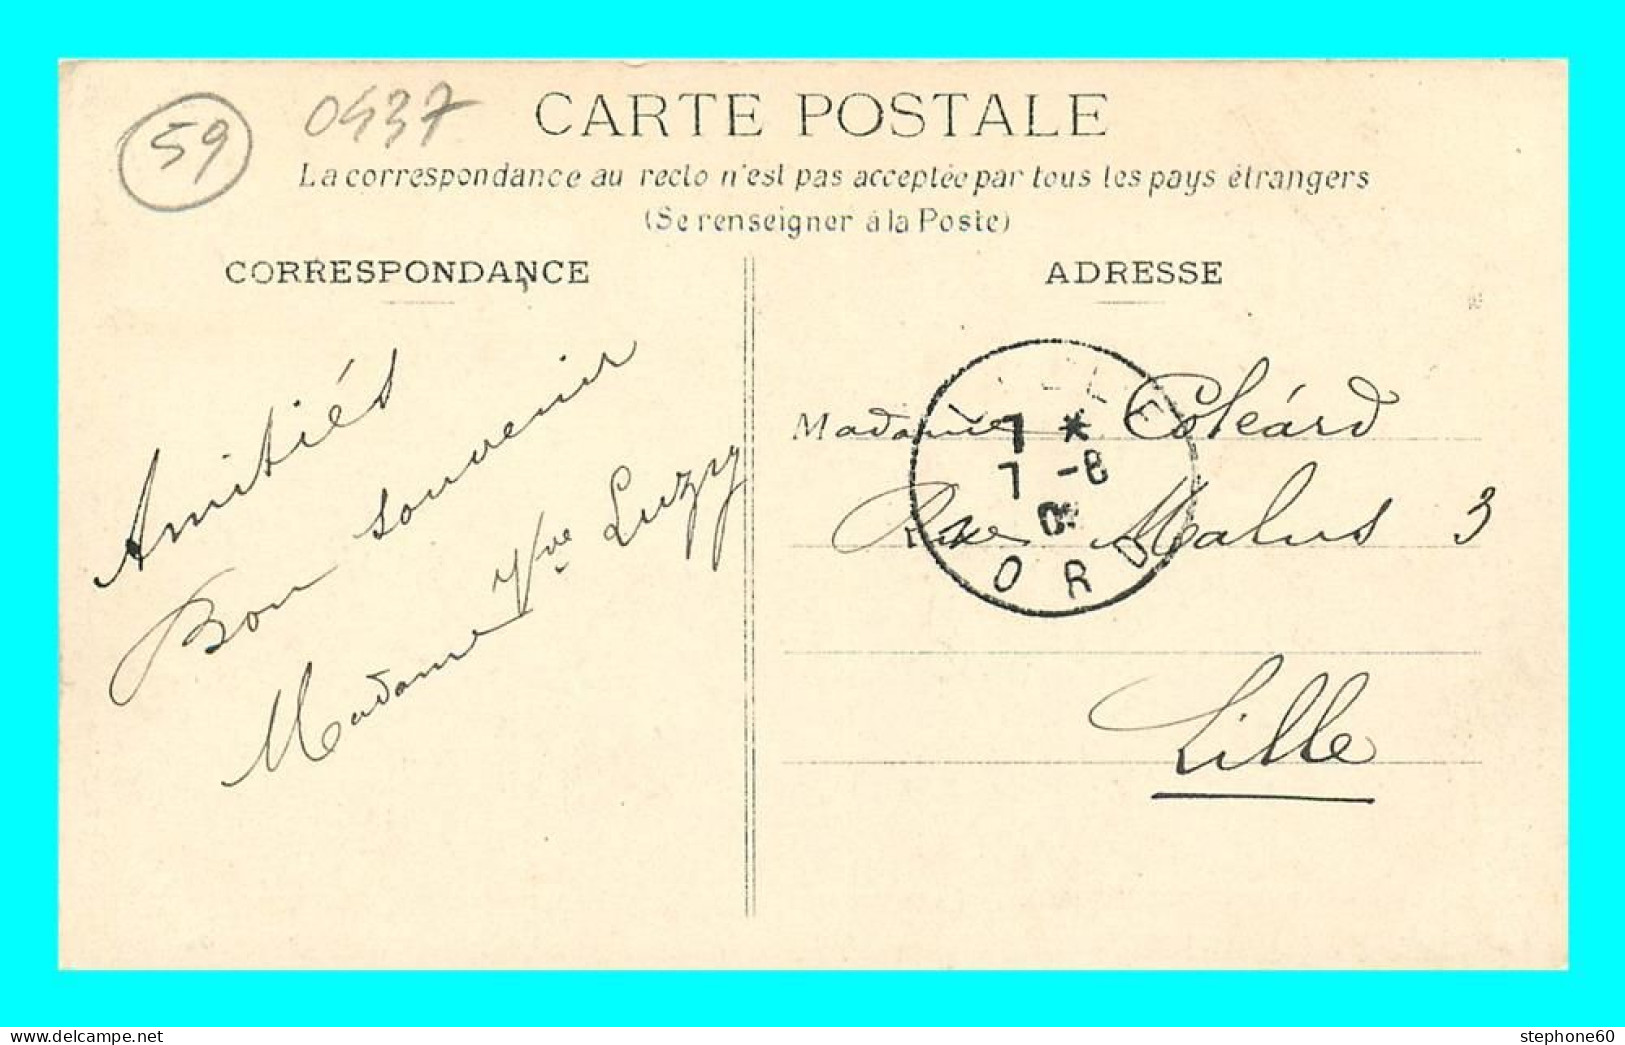 59
0437
CARTE POSTALE
La correspondance au recto n'est pas acceptée par tous les pays étrangers
(Se renseigner à la Poste)
CORRESPONDANCE
ADRESSE
Amitiés
Bon souvenir
Madame Vve Luzy
LILLE
7 *
7 -8
NORD
Madame
Rue Malus 3
Lille
delcampe.net
stephone60